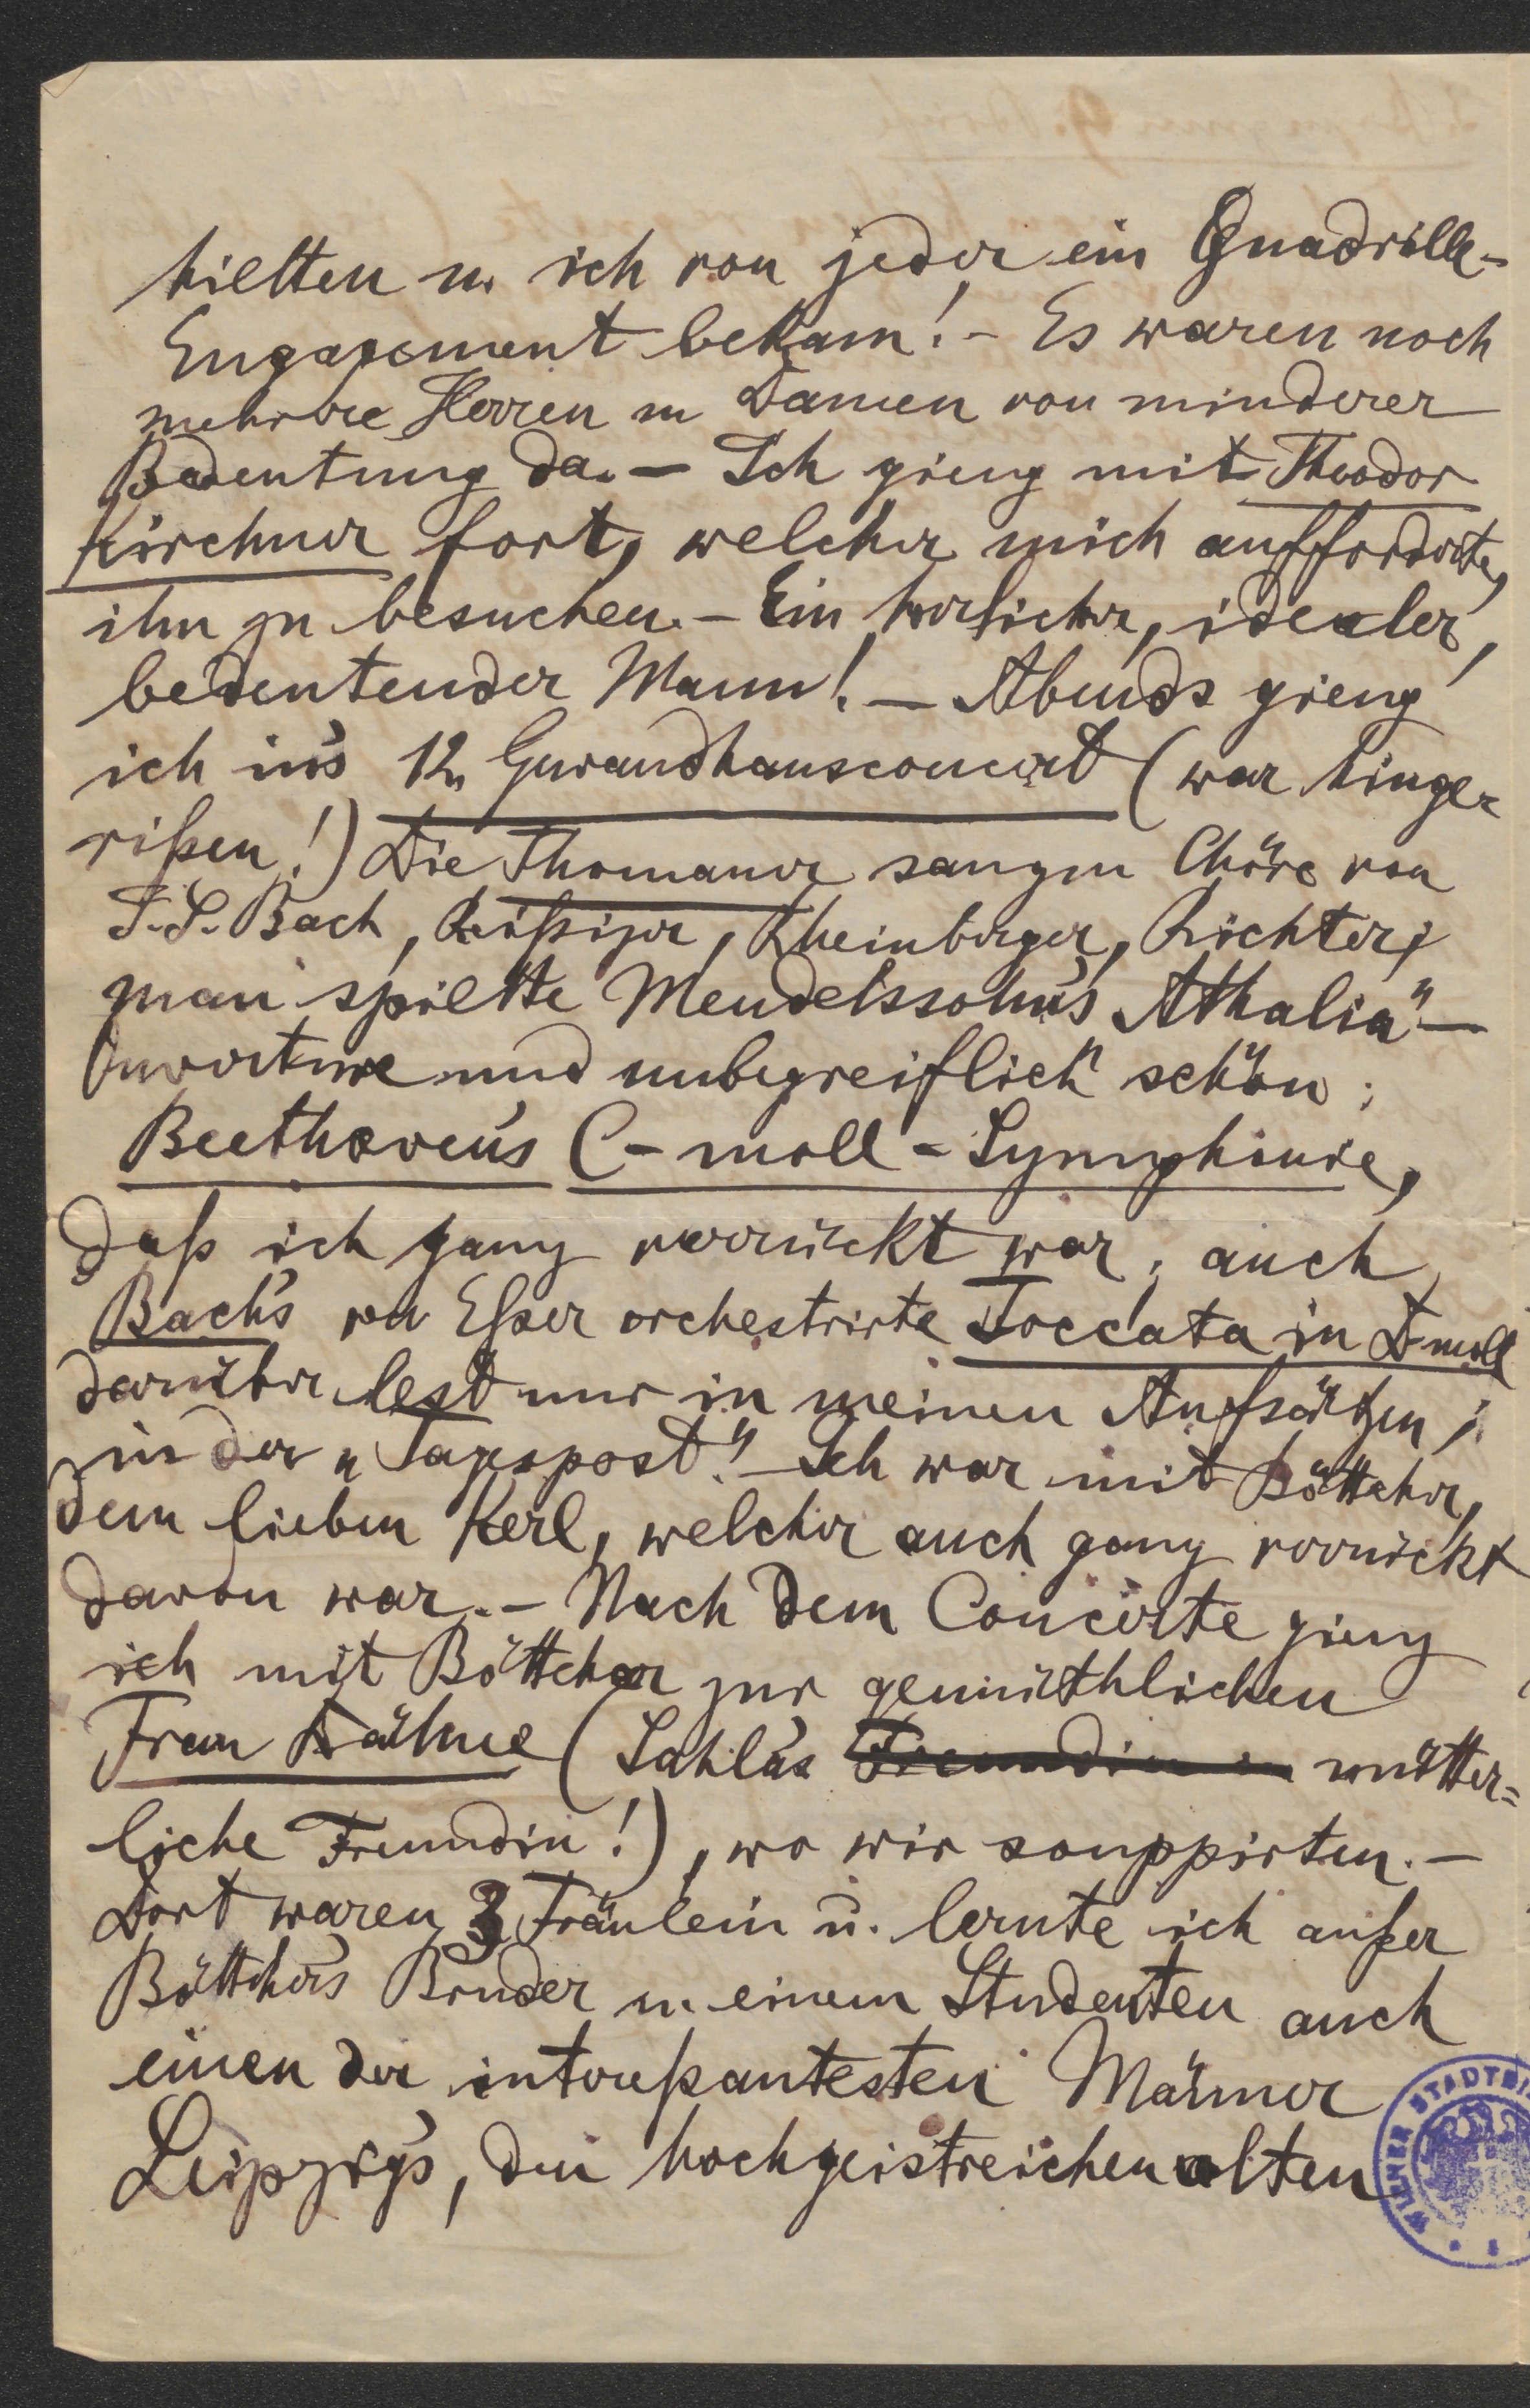 hielten u. ich von jeder ein Quadrille-
Engagement bekam! - Es waren noch
mehrere Herren u Damen von minderer
Bedeutung da. - Ich gieng mit Theodor
Kirchner fort, welcher mich aufforderte,
ihn zu besuchen. - Ein herrlicher, idealer,
bedeutender Mann! - Abends gieng
ich in's 12. Gewandhausconcert (war hinge-
rißen!) Die Thomaner sangen Chöre von
J. S. Bach, Reißiger, Rheinberger, Richter;
man spielte Mendelssohn's Athalia"-
Ouverture und unbegreiflich schön;
Beethoven's C-moll-Symphonie,
daß ich ganz verrückt war; auch
Bach's von Eßer orchestrirte Toccata in D-moll
darüber lest nur in meinen Aufsätzen;
in der „Tagespost"! - Ich war mit Böttcher,
dem lieben Kerl, welcher auch ganz verrückt
davon war. - Nach dem Concerte gieng
ich mit Böttcher zur gemüthlichen
Frau Kähne (Sahla's Freundin mütter=
liche Freundin!), wo wir souppirten. -
Dort waren 3 Fräulein u. lernte ich außer
Böttcher's Bruder u. einem Studenten auch
einen der intereßantesten Männer
Leipzig's, den hochgeistreichen alten
WIENER STADTBI